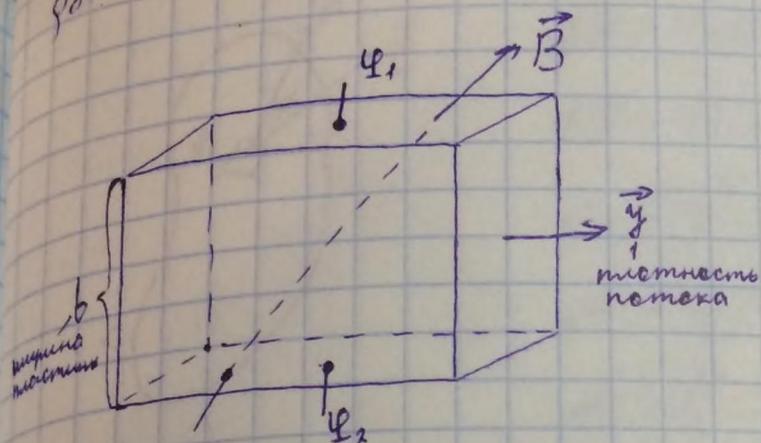 φ₁
B
j
плотность
потока
b
ширина
пластин
φ₂